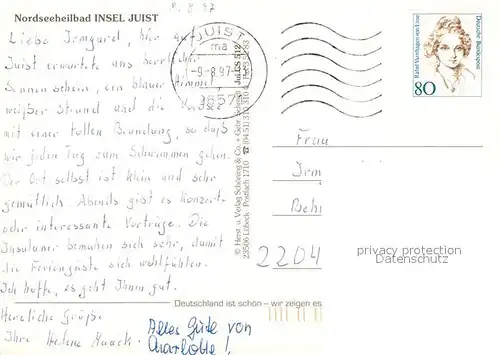 Nordseeheilbad INSEL JUIST
9.8.97
Liebe Irmgard, hier auf
Juist erwartete uns herrlicher
Sonnenschein, ein blauer Himmel,
weißer Strand und die Nordsee
mit einer tollen Brandung, so daß
wir jeden Tag zum Schwimmen gehen.
Der Ort selbst ist klein und sehr
gemütlich. Abends gibt es Konzerte
oder interessante Vorträge. Die
Insulaner bemühen sich sehr, damit
die Feriengäste sich wohlfühlen.
Ich hoffe, es geht Ihnen gut.
Herzliche Grüße
Ihre Helene
Alles Gute von
Charlotte!
JUIST
-9-8.97
© Herst. u. Verlag Schöning & Co. + Gebr. Schmidt
23506 Lübeck · Postfach 1710 ☎ (04 51)
Deutschland ist schön – wir zeigen es
Rahel Varnhagen von Ense
Deutsche Bundespost
80
Frau
Irm
Beh
2204
privacy protection
Datenschutz